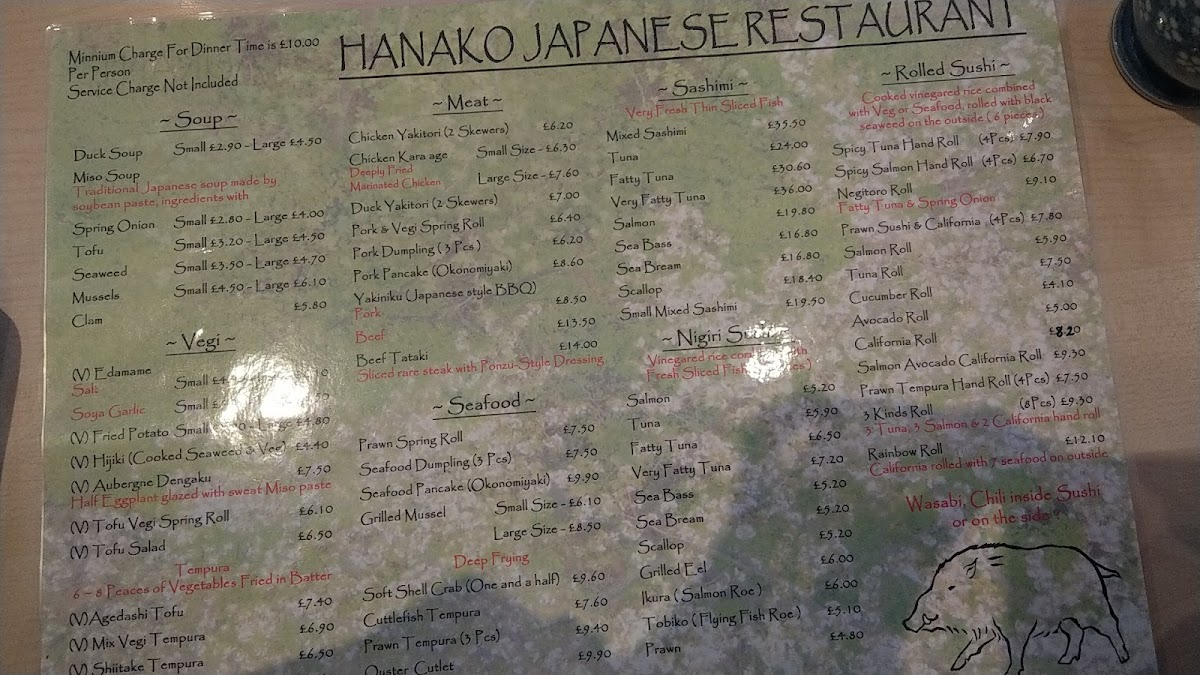 HANAKO JAPANESE RESTAURANT
Minnium Charge For Dinner Time is £10.00
Per Person
Service Charge Not Included
~ Soup ~
Duck Soup Small £2.90 - Large £4.50
Miso Soup
Traditional Japanese soup made by
soybean paste, ingredients with
Spring Onion Small £2.80 - Large £4.00
Tofu Small £3.20 - Large £4.50
Seaweed Small £3.50 - Large £4.70
Mussels Small £4.50 - Large £6.10
Clam £5.80
~ Vegi ~
(V) Edamame
Salt Small
Soya Garlic Small
(V) Fried Potato Small Large £4.80
(V) Hijiki (Cooked Seaweed & Veg) £4.40
(V) Aubergne Dengaku £7.50
Half Eggplant glazed with sweat Miso paste
(V) Tofu Vegi Spring Roll £6.10
(V) Tofu Salad £6.50
Tempura
6 – 8 Peaces of Vegetables Fried in Batter
(V) Agedashi Tofu £7.40
(V) Mix Vegi Tempura £6.90
(V) Shiitake Tempura £6.50
~ Meat ~
Chicken Yakitori (2 Skewers) £6.20
Chicken Kara age Small Size - £6.30
Deeply Fried
Marinated Chicken Large Size - £7.60
Duck Yakitori (2 Skewers) £7.00
Pork & Vegi Spring Roll £6.40
Pork Dumpling (3 Pcs) £6.20
Pork Pancake (Okonomiyaki) £8.60
Yakiniku (Japanese style BBQ)
Pork £8.50
Beef £13.50
Beef Tataki £14.00
Sliced rare steak with Ponzu-Style Dressing
~ Seafood ~
Prawn Spring Roll £7.50
Seafood Dumpling (3 Pcs) £7.50
Seafood Pancake (Okonomiyaki) £9.90
Grilled Mussel Small Size - £6.10
Large Size - £8.50
Deep Frying
Soft Shell Crab (One and a half) £9.60
Cuttlefish Tempura £7.60
Prawn Tempura (3 Pcs) £9.40
Oyster Cutlet £9.90
~ Sashimi ~
Very Fresh Thin Sliced Fish
Mixed Sashimi £35.50
Tuna £24.00
Fatty Tuna £30.60
Very Fatty Tuna £36.00
Salmon £19.80
Sea Bass £16.80
Sea Bream £16.80
Scallop £18.40
Small Mixed Sashimi £19.50
~ Nigiri
Vinegared rice
Fresh Sliced
Salmon £5.20
Tuna £5.90
Fatty Tuna £6.50
Very Fatty Tuna £7.20
Sea Bass £5.20
Sea Bream £5.20
Scallop £5.20
Grilled Eel £6.00
Ikura (Salmon Roe) £6.00
Tobiko (Flying Fish Roe) £5.10
Prawn £4.80
~ Rolled Sushi ~
Cooked vinegared rice combined
with Veg or Seafood, rolled with black
seaweed on the outside (6 pieces)
Spicy Tuna Hand Roll (4Pcs) £7.90
Spicy Salmon Hand Roll (4Pcs) £6.70
Negitoro Roll £9.10
Fatty Tuna & Spring Onion
Prawn Sushi & California (4Pcs) £7.80
Salmon Roll £5.90
Tuna Roll £7.50
Cucumber Roll £4.10
Avocado Roll £5.00
California Roll £8.20
Salmon Avocado California Roll £9.30
Prawn Tempura Hand Roll (4Pcs) £7.50
3 Kinds Roll (8Pcs) £9.30
3 Tuna, 3 Salmon & 2 California hand roll
Rainbow Roll £12.10
California rolled with 7 seafood on outside
Wasabi, Chili inside Sushi
or on the side